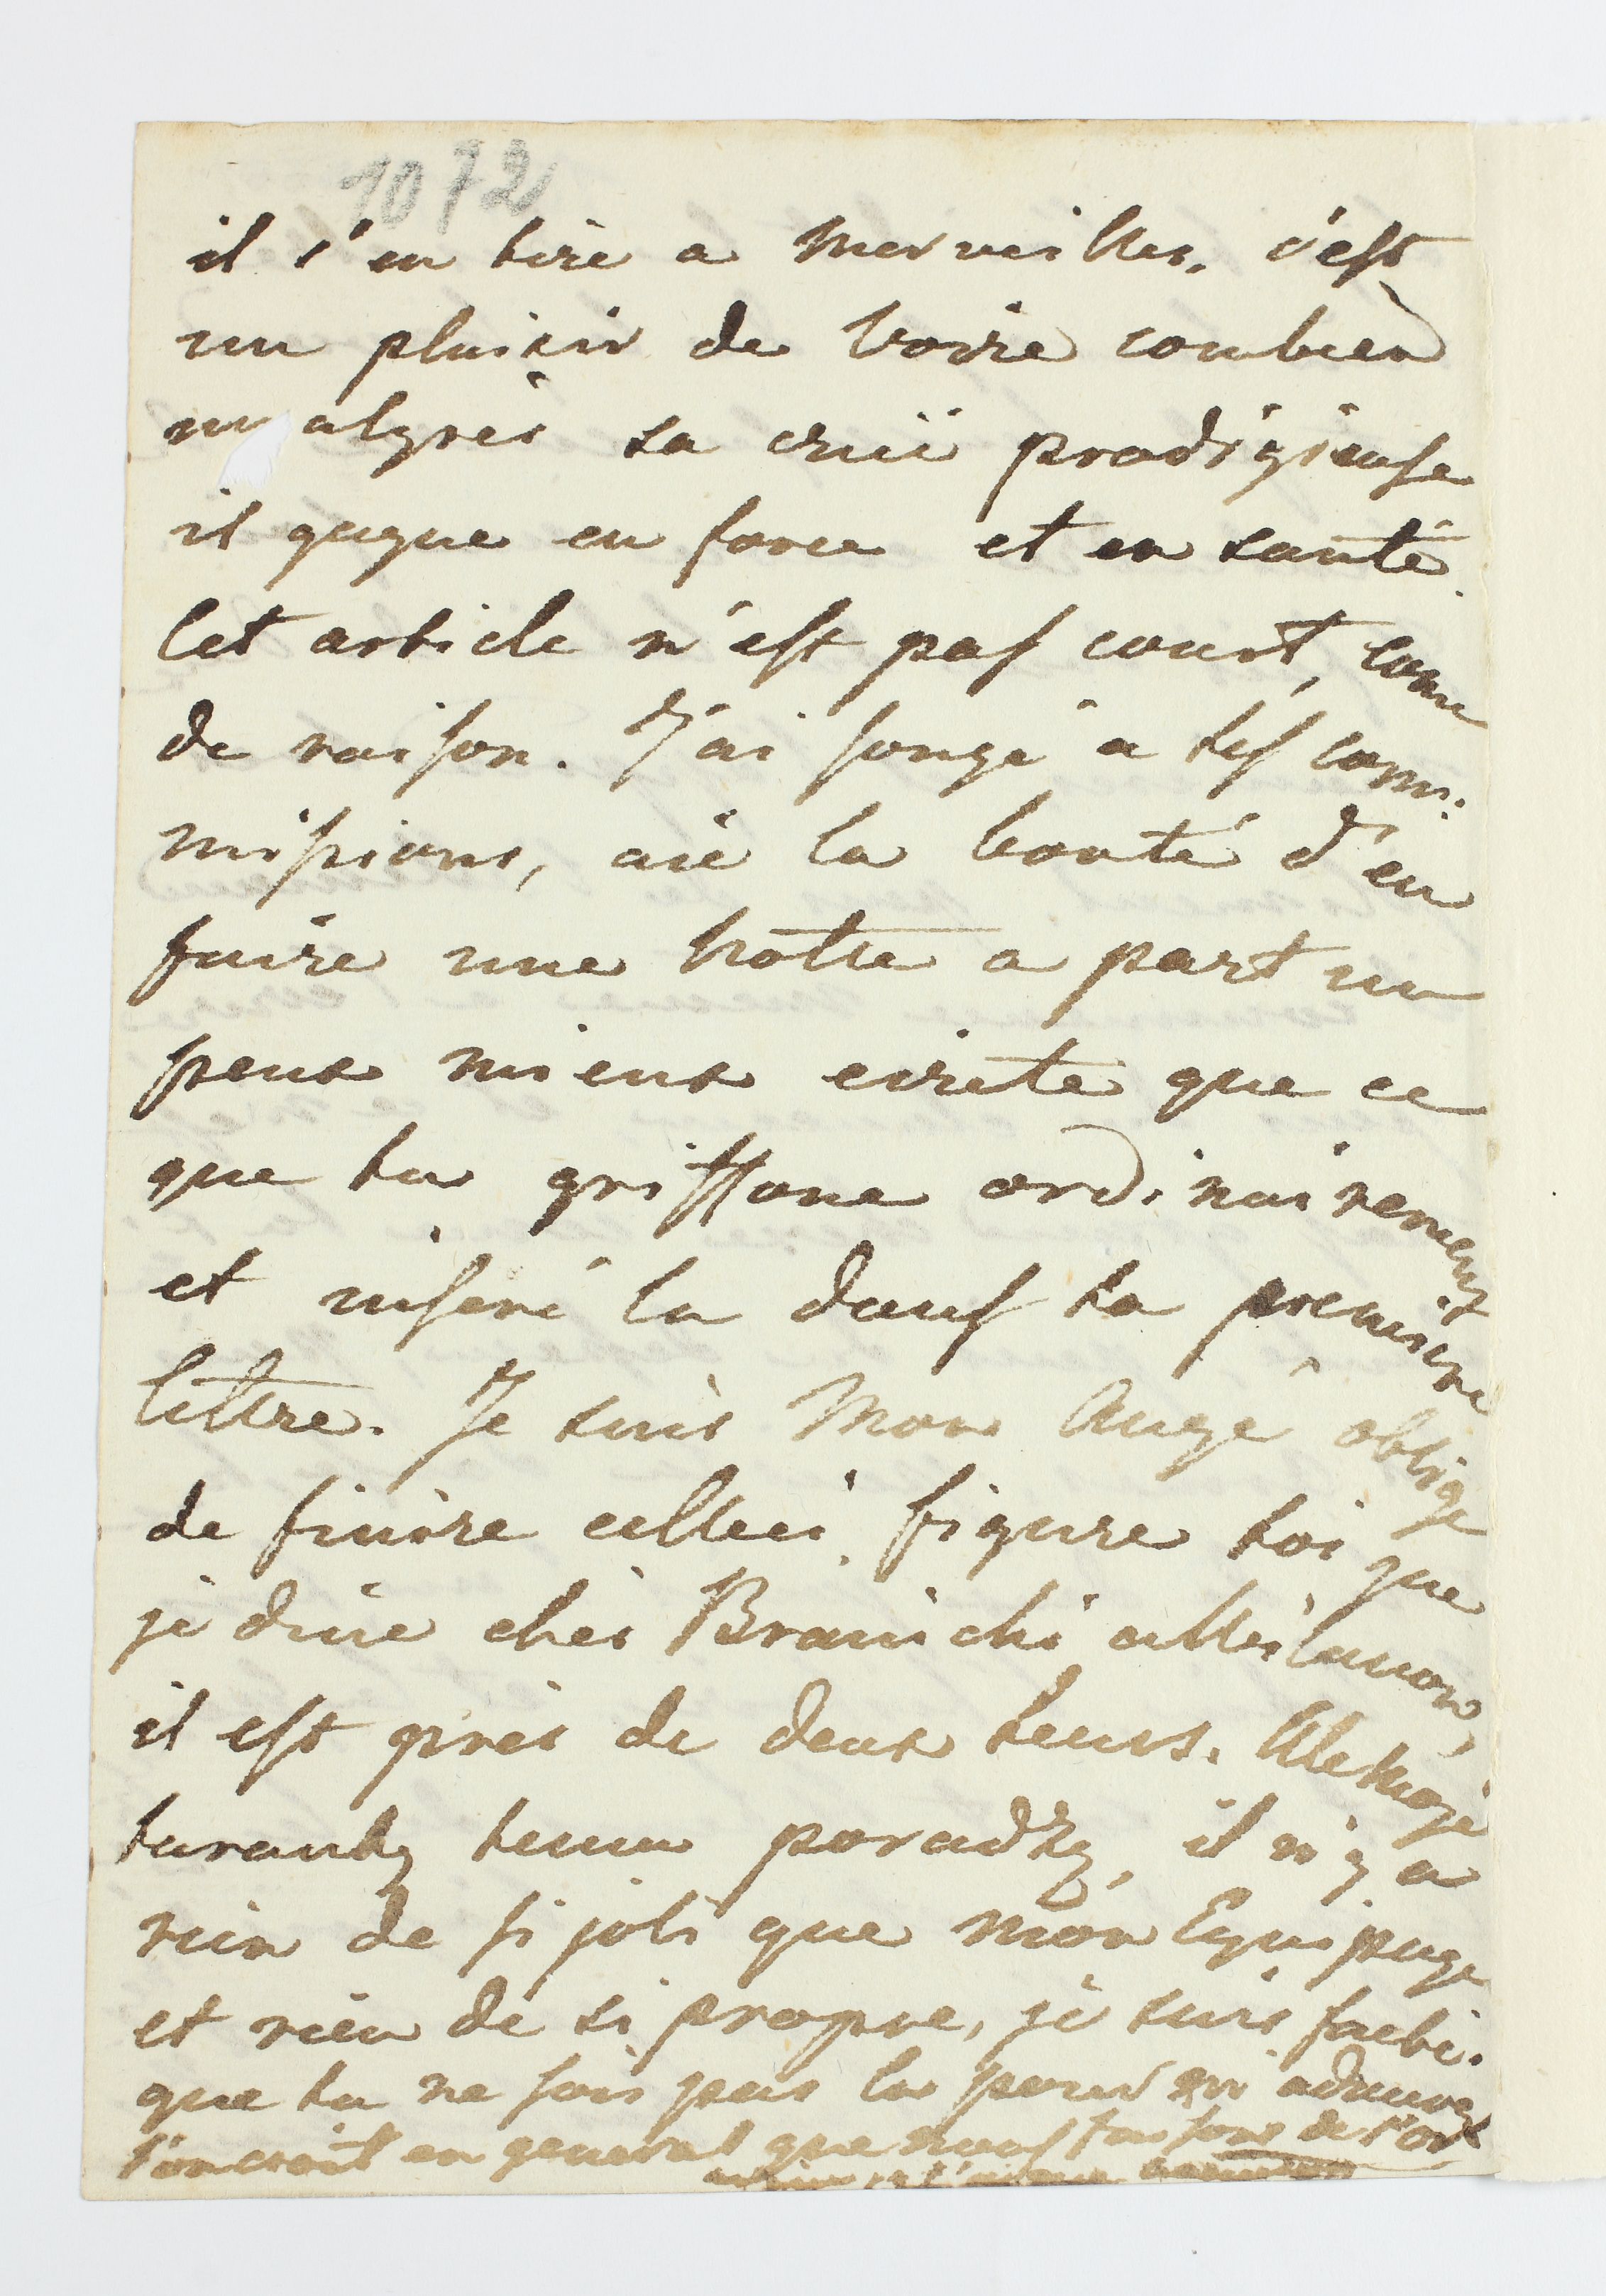 1072
il s'en tire a merveilles. c'est
un plaisir de voire combien
malgrès sa crüe prodigieuse
il gagne en force et en santé.
Cet article n'est pas court, come
de raison. J'ai songé a tes com:
missions, aie la bonté d'en
faire une notte a part un
peux mieux ecrite que ce
que tu griffone ordinairement
et inseré la dans ta premiere
lettre. Je suis Mon Ange obligé
de finire cellecí, figure toi que
je dine chès Branichi
il est près de deux heurs. Ale moje
taranty temu poradzą, il n'y a
rien de si joli que mon Equipage
et rien de si propre, je suis fachè.
que tu ne sois pas la pour
l'on croit en general que nous faisons de l'or